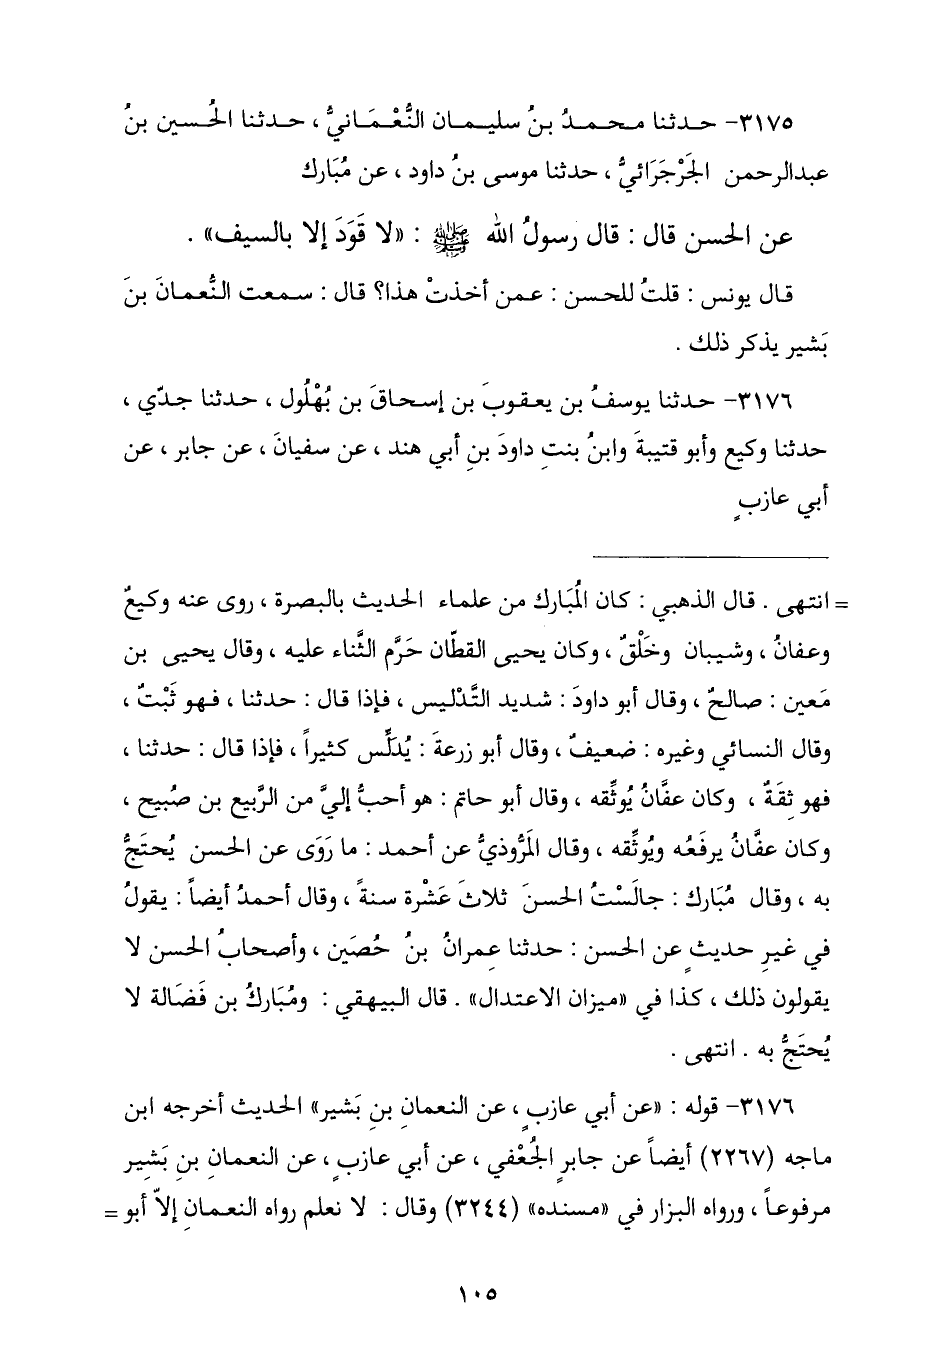 ٣١٧٥- حدثنا محمدُ بنُ سليمان النُّعْمَانيُّ ، حدثنا الحُسين بنُ
عبدالرحمن الجَرْجَرَائيُّ ، حدثنا موسى بنُ داود ، عن مُبَارك
عن الحسن قال : قال رسولُ الله ﷺ : «لا قَوَدَ إلا بالسيف» .
قال يونس : قلتُ للحسن : عمن أخذتْ هذا؟ قال : سمعت النُّعمانَ بنَ
بَشير يذكر ذلك .
٣١٧٦- حدثنا يوسفُ بن يعقوبَ بن إسحاقَ بن بُهْلُول ، حدثنا جدّي ،
حدثنا وكيع وأبو قتيبةَ وابنُ بنتِ داودَ بنِ أبي هند ، عن سفيانَ ، عن جابر ، عن
أبي عازبٍ
= انتهى . قال الذهبي : كان المُبَارك من علماء الحديث بالبصرة ، روى عنه وكيعٌ
وعفانُ ، وشيبان وخَلْقٌ ، وكان يحيى القطّان حَرَّم الثَّناء عليه ، وقال يحيى بن
مَعين : صالحٌ ، وقال أبو داودَ : شديد التَّدْليس ، فإذا قال : حدثنا ، فهو ثَبْتٌ ،
وقال النسائي وغيره : ضعيفٌ ، وقال أبو زرعةَ : يُدَلِّس كثيراً ، فإذا قال : حدثنا ،
فهو ثِقَةٌ ، وكان عفَّانُ يُوثِّقه ، وقال أبو حاتم : هو أحبُّ إليَّ من الرَّبيع بن صُبيح ،
وكان عفَّانُ يرفَعُه ويُوثِّقه ، وقال المَرُّوذيُّ عن أحمد : ما رَوَى عن الحسن يُحتَجُّ
به ، وقال مُبَارك : جالَسْتُ الحسنَ ثلاثَ عَشْرة سنةً ، وقال أحمدُ أيضاً : يقولُ
في غيرِ حديثٍ عن الحسن : حدثنا عِمرانُ بنُ حُصَين ، وأصحابُ الحسن لا
يقولون ذلك ، كذا في «ميزان الاعتدال» . قال البيهقي : ومُبَاركُ بن فَضَالة لا
يُحتَجُّ به . انتهى .
٣١٧٦- قوله : «عن أبي عازبٍ ، عن النعمانِ بنِ بَشير» الحديث أخرجه ابن
ماجه (٢٢٦٧) أيضاً عن جابرٍ الجُعْفي ، عن أبي عازبٍ ، عن النعمانِ بنِ بَشيرٍ
مرفوعاً ، ورواه البزار في «مسنده» (٣٢٤٤) وقال : لا نعلم رواه النعمانِ إلاّ أبو =
١٠٥